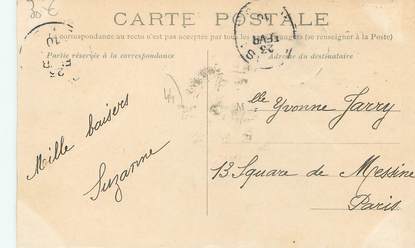 30 €
CARTE POSTALE
La correspondance au recto n'est pas acceptée par tous les pays étrangers (se renseigner à la Poste)
Partie réservée à la correspondance
Adresse du destinataire
23
FEVR
Mille baisers
Suzanne
Mlle Yvonne Jarry
13 Square de Messine
Paris